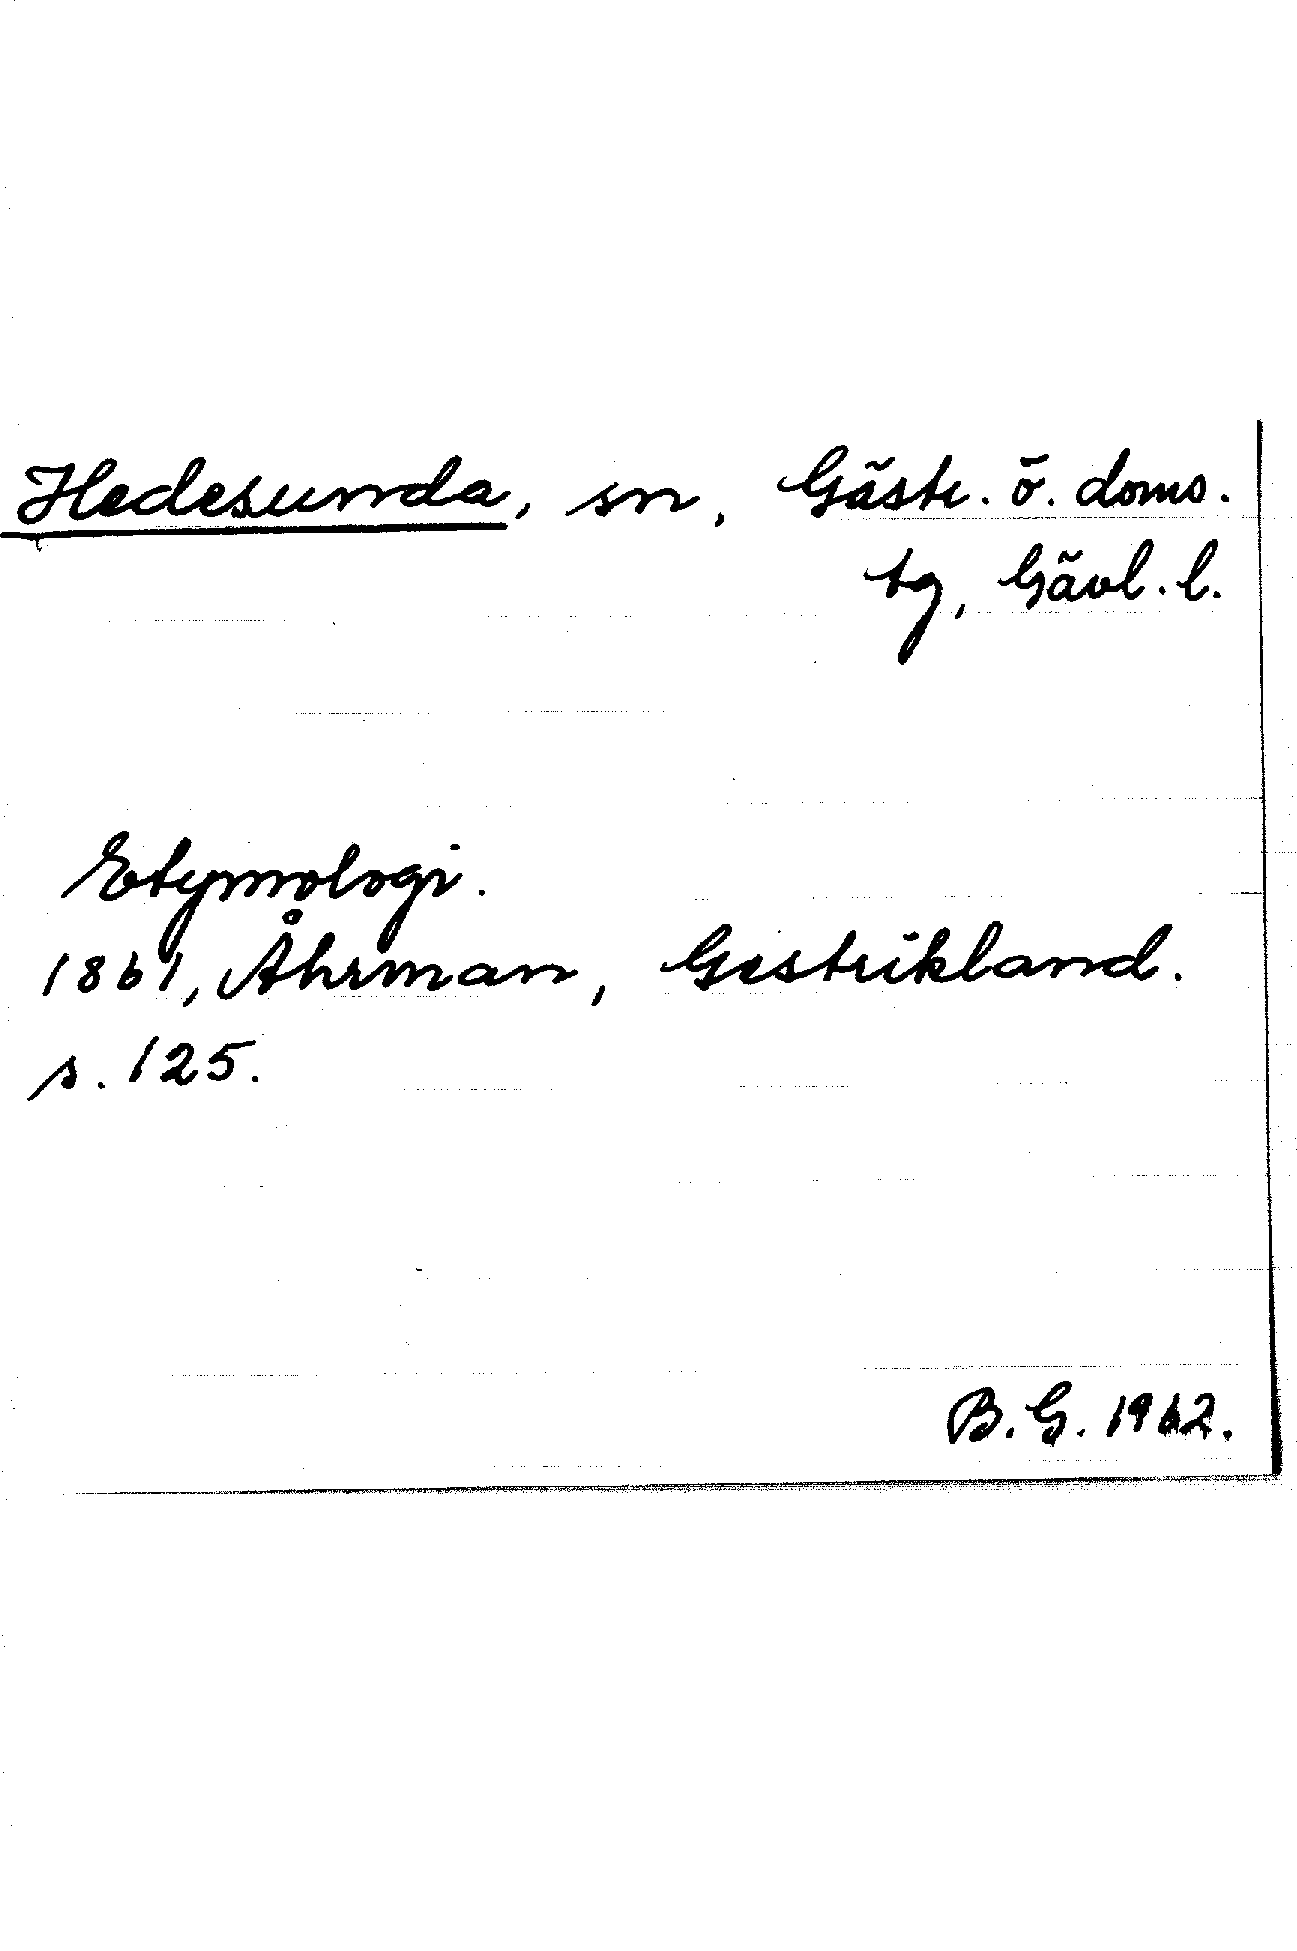 Hedesunda, sn, Gästr. ö. doms.
tg, Gävl. l.
Etymologi.
1861, Åhrman, Gestrikland.
s. 125.
B. G. 1962.